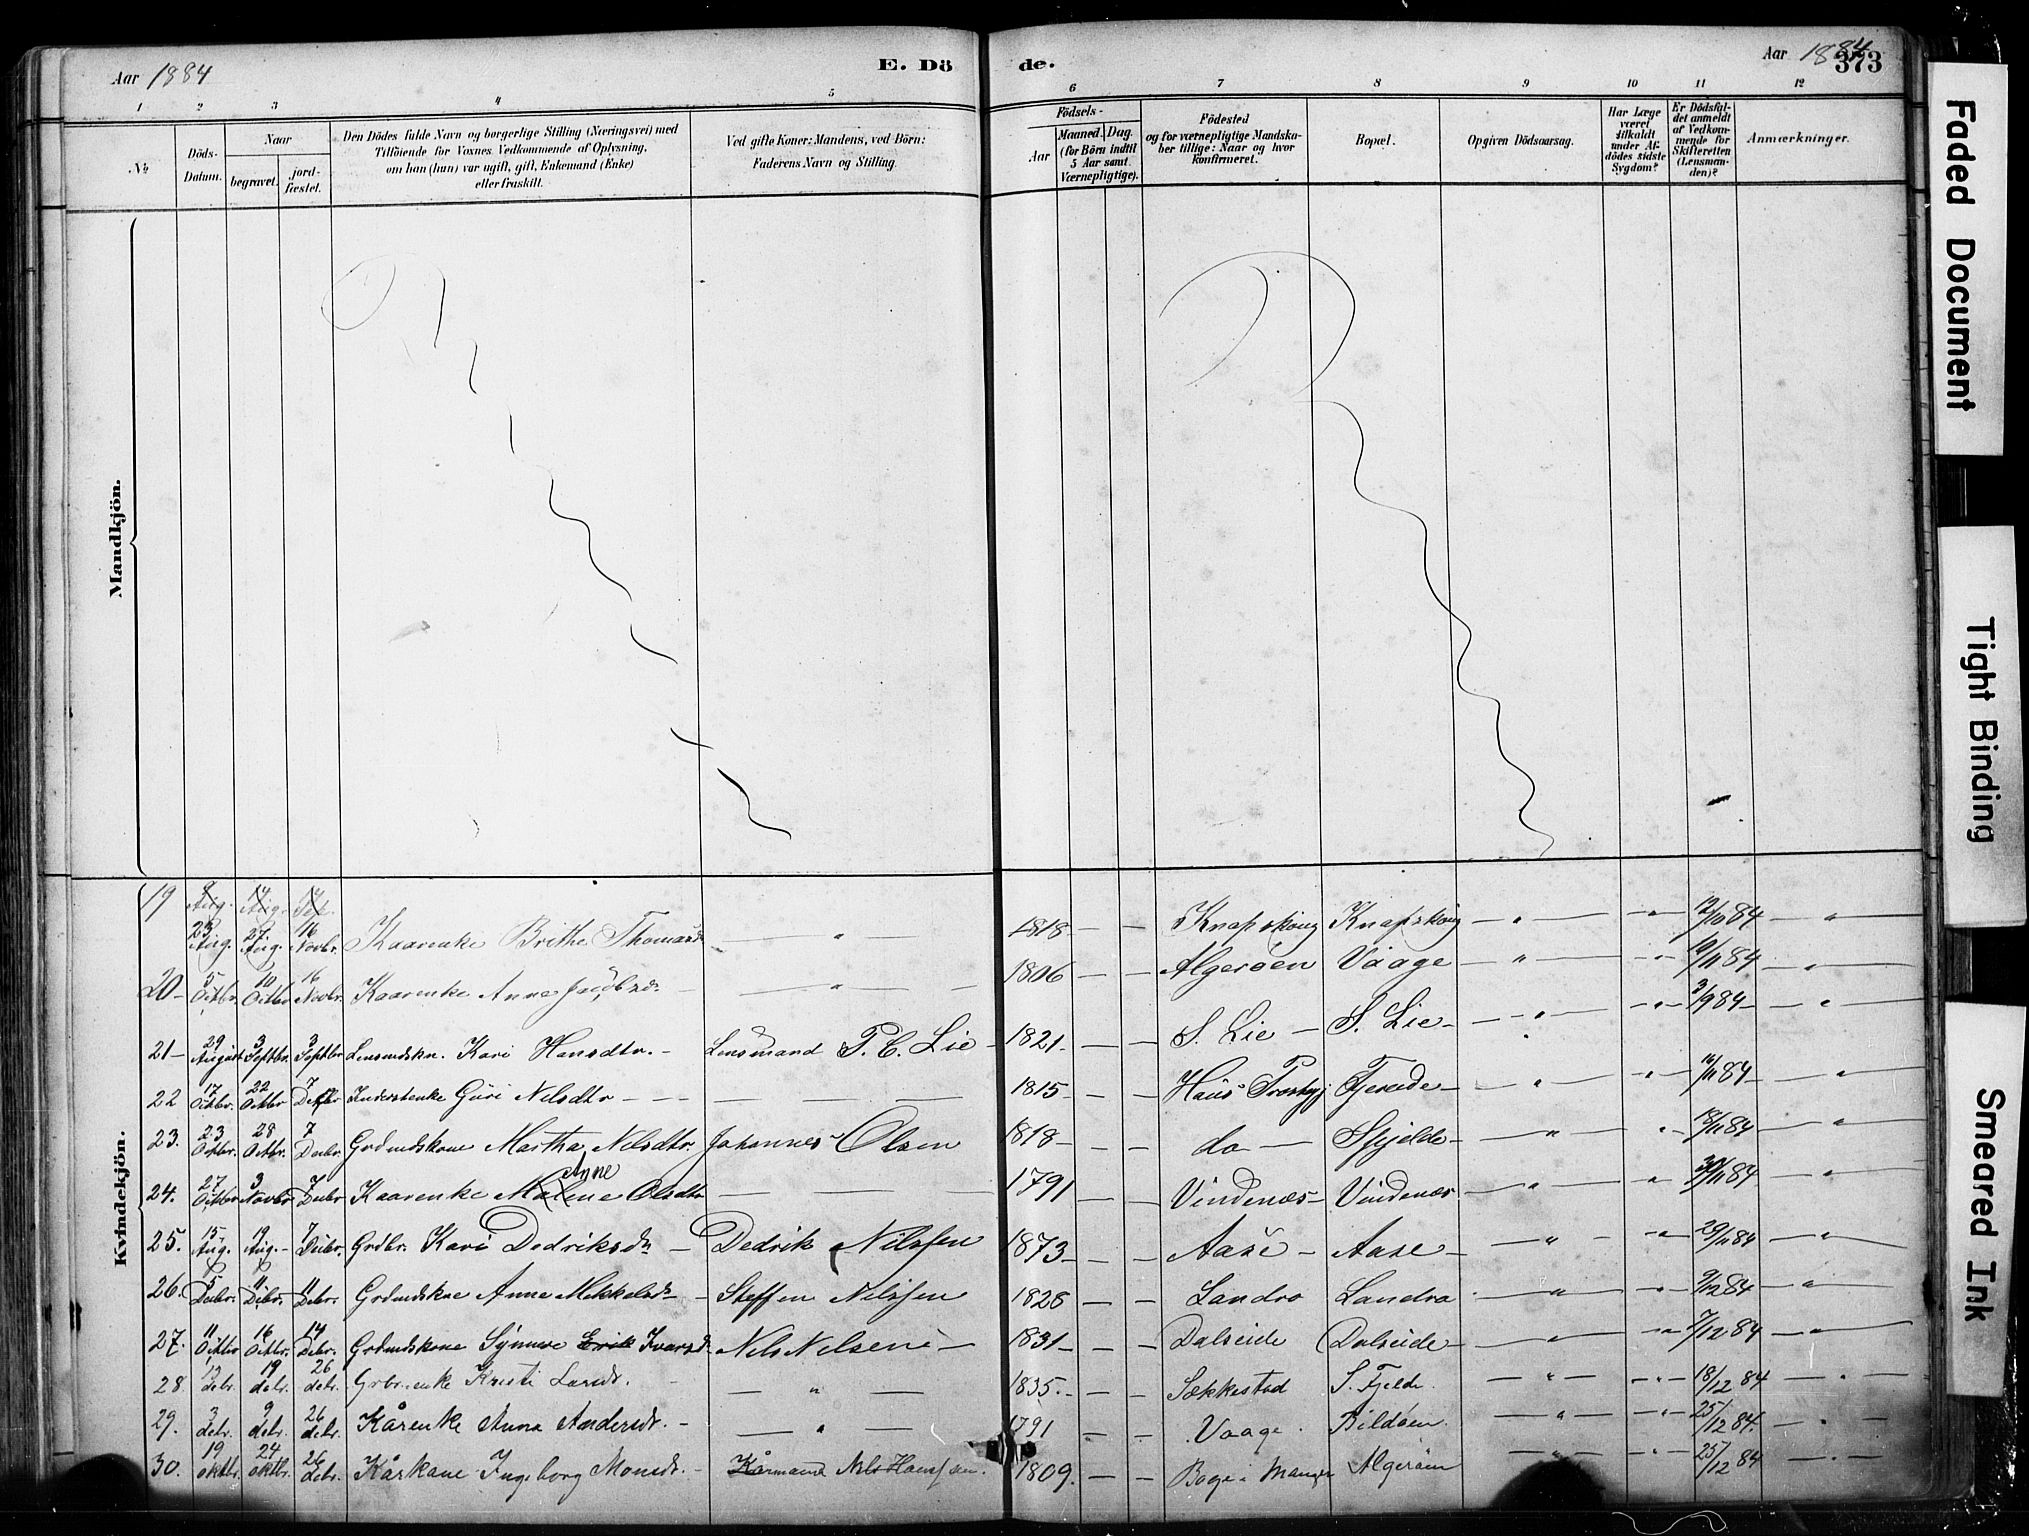 Aar 1884
E. Dö
de.
Aar 1884
373
1 2 3 4 5 6 7 8 9 10 11 12
№
Döds-
Datum.
Naar
begravet.
jord-
fæstet.
Den Dödes fulde Navn og borgerlige Stilling (Næringsvei) med
Tilföiende for Voxnes Vedkommende af Oplysning,
om han (hun) var ugift, gift, Enkemand (Enke)
eller fraskilt.
Ved gifte Koner: Mandens, ved Börn:
Faderens Navn og Stilling.
Födsels-
Aar
Maaned. Dag.
(for Börn indtil
5 Aar samt
Værnepligtige).
Födested
og for værnepligtige Mandska-
ber tillige: Naar og hvor
konfirmeret.
Bopæl.
Opgiven Dödsaarsag.
Har Læge
været
tilkaldt
under Af-
dödes sidste
Sygdom?
Er Dödsfal-
det anmeldt
af Vedkom-
mende for
Skifteretten
(Lensman-
den)?
Anmærkninger.
Mandkjön.
Kvindekjön.
19 Aug. Aug.
23 Aug. 27 Aug. 16 Novbr. Kaarenke Brithe Thomasd — " 1818 — — Knapskoug Knapskoug — " — " — 12/10 84 — "
20 — 5 Octbr. 10 Octbr 16 Novbr. Kaarenke Anne — " — 1806 — — Algeröen Vaage — " — " — 84 — "
21 — 29 August 3 Septbr. 3 Septbr Lensmdskn. Kari Hansdtr. — Lensmand P. C. Lie — 1821 — — S. Lie — S. Lie — " — " — 3/9 84 — "
22 17 Octbr. 22 Octbr 7 Decbr Inderstenke Guri Nilsdtr — — — 1815 — — Haus Præstegj Fjereide — " — " — 84 — "
23. 23 Octbr. 28 Octbr. 7 Decbr. Grdmdskone Martha Nilsdtr. Johannes Olsen 1818 — — do — Spjelde — " — " — 84 — "
24. 27 Octbr 3 Novbr 7 Decbr Kaarenke Malene Anne Olsdtr — — 1791 — — Vindenæs — Vindenæs — " — " — 30/11 84 — "
25. 15 Aug. 19 Aug. — 7 Decbr. Grdbr. Kari Dedriksdr — Dedrik Nilssen 1873 — — Aase — Aase — " — " — 29/11 84 — "
26. 5 Decbr. 11 Decbr. 11 Decbr. Grdmdskne Anne Mikkelsdr — Steffen Nilssen 1828 — — Landro Landro — " — " — 9/12 84 — "
27. 11 Octbr 16 Octbr. 14 Decbr. Grdmdskone Synneve Erik Ivarsd. Nils Nilsen — 1831 — — Dalseide Dalseide — " — " — 7/12 84 — "
28. 13 debr. 19 debr. 26 debr. Grbr.enke Kristi Larsdr. — — " — 1835. — — Sekkestad S. Fjelde. — " — " — 18/12 84 — "
29. 3 debr. 9 debr. 26 debr. Kårenke Anna Andersdr. — — " — 1791 — — Vaage. Bildöen. — " — " — 25/12 84. — "
30. 19 oktbr. 24 oktbr. 26 debr. Kårkone Ingeborg Monsdr. — Kårmand Nils Hanssen. 1809. — — Bøge i Manger Algeröen — " — " — 25/12 84 — "
Faded Document
Tight Binding
Smeared Ink